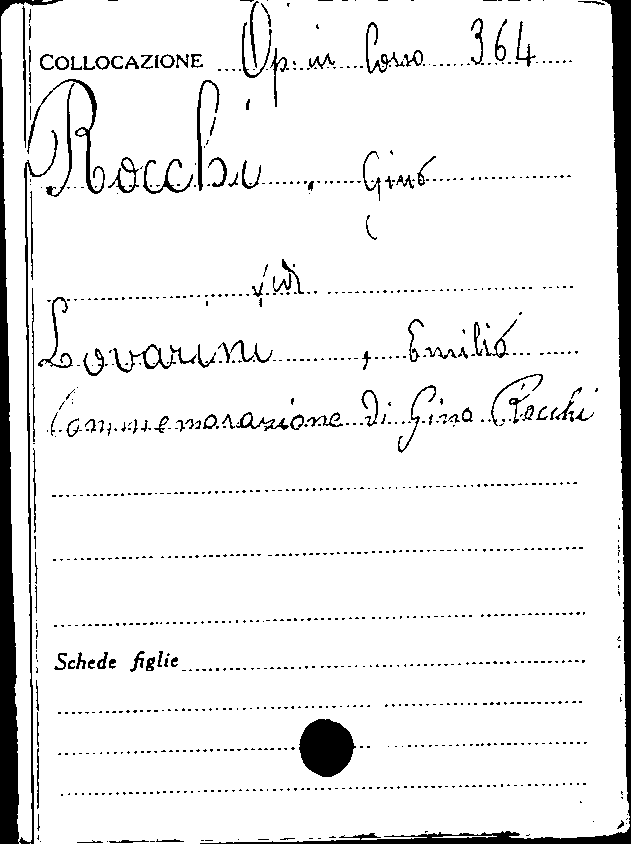 COLLOCAZIONE Op. in Corso 364
Rocchi, Gino
vedi
Lovarini, Emilio
Commemorazione di Gino Rocchi
Schede figlie